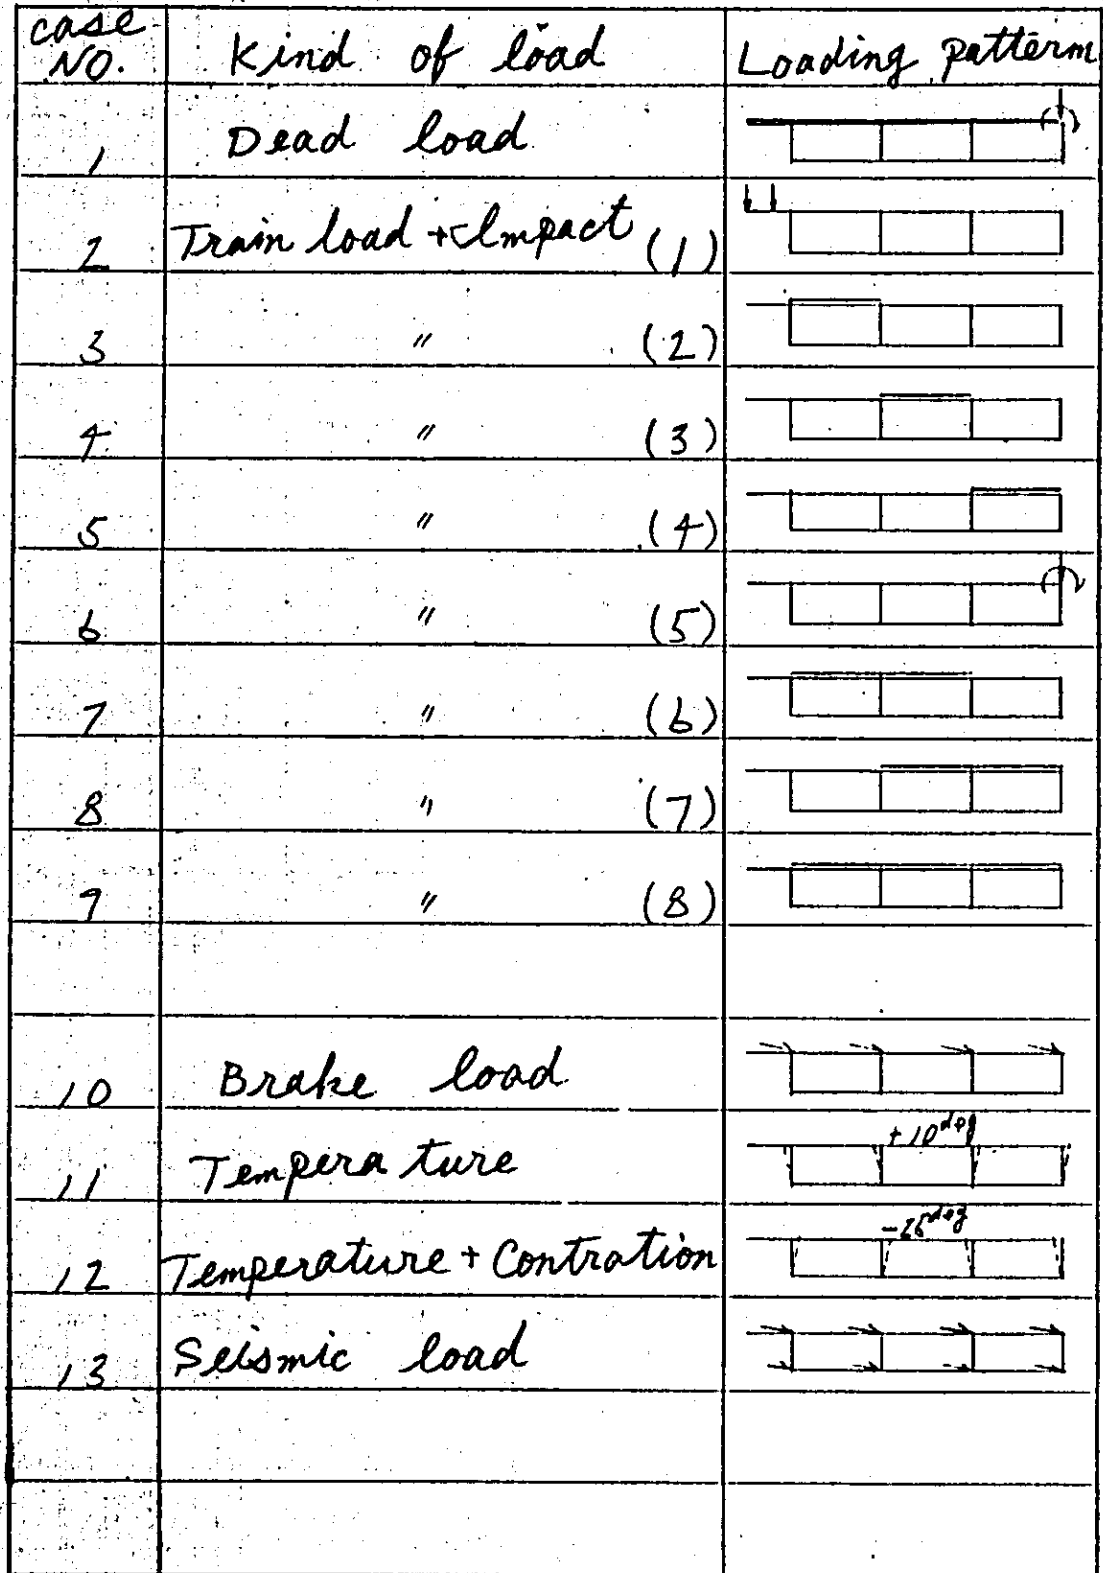 case NO. Kind of load Loading patterm
1 Dead load
2 Train load + Impact (1)
3 〃 (2)
4 〃 (3)
5 〃 (4)
6 〃 (5)
7 〃 (6)
8 〃 (7)
9 〃 (8)
10 Brake load
11 Temperature +10deg
12 Temperature + Contration -25deg
13 Seismic load